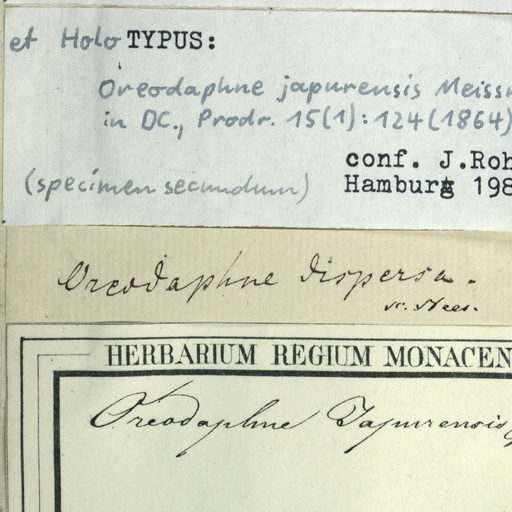 et Holo TYPUS:
Oreodaphne japurensis Meissn
in DC., Prodr. 15(1):124(1864)
conf. J.Roh
(specimen secundum) Hamburg 198
Oreodaphne dispersa.
N. Nees.
HERBARIUM REGIUM MONACEN
Oreodaphne Japurensis